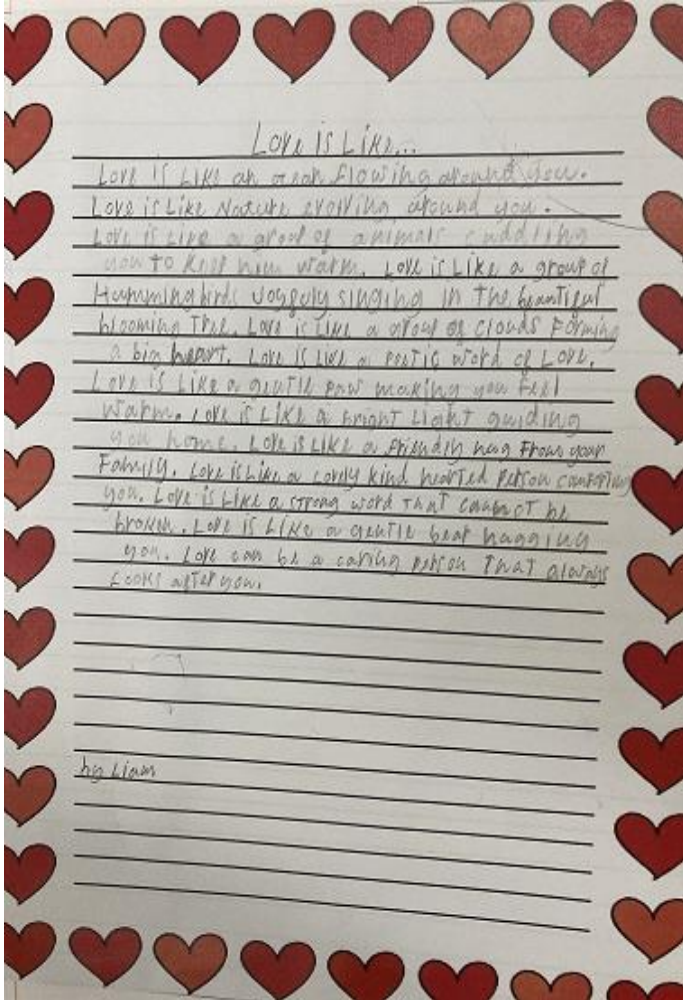 Love is Like...
Love is Like an ocean flowing around you.
Love is Like Nature evolving around you.
Love is Like a group of animals cuddling
you to keep him warm. Love is Like a group of
Hummingbirds Joyfuly singing in the beautiful
blooming Tree. Love is Like a group of clouds Forming
a big heart. Love is Like a Poetic word of Love.
Love is Like a gentle paw making you feel
warm. Love is Like a bright Light guiding
you home. Love is Like a friendly hug From your
Family. Love is Like a Lovely kind hearted Person comforting
you. Love is Like a strong word That cannot be
broken. Love is Like a gentle bear hugging
you. Love can be a caring person That always
Looks after you.
by Liam